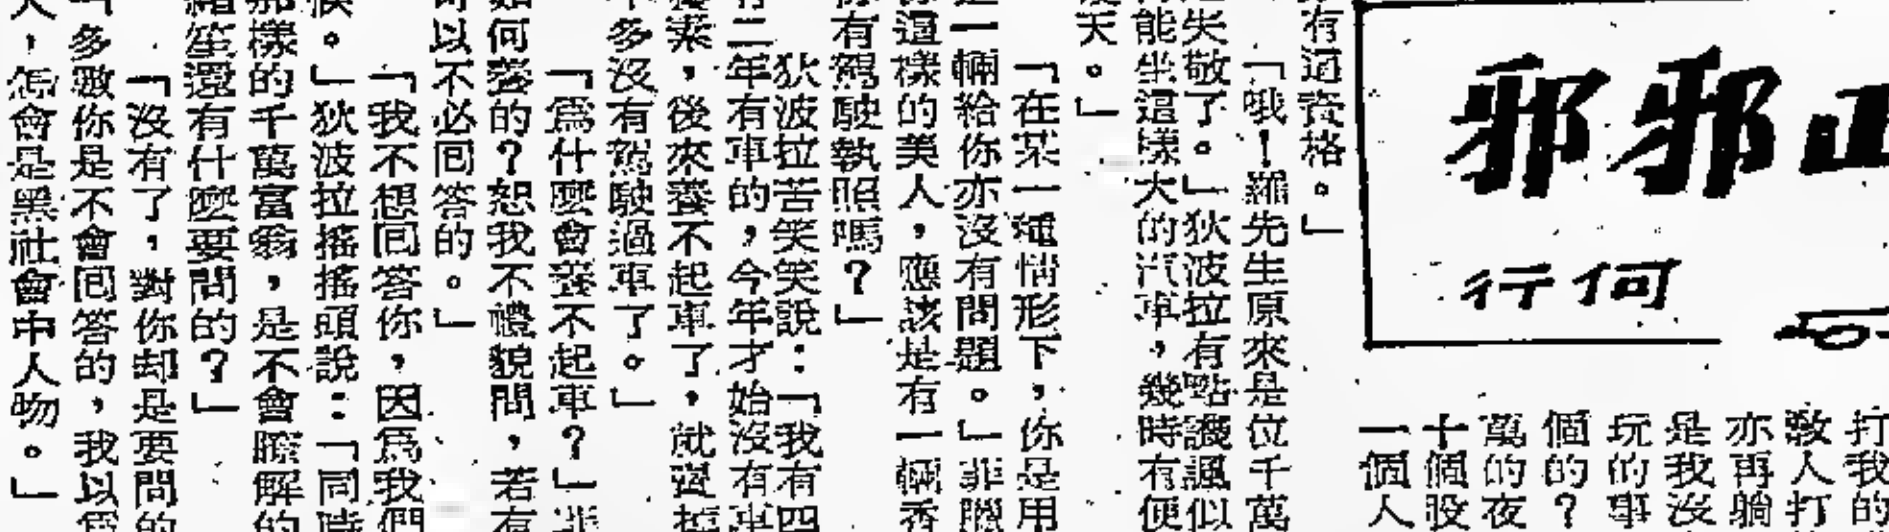 邪邪
何行
打我的
敎人打
亦再躺
是我沒
玩的事
個的？
萬的夜
十個股
一個人
有這資格。」
「哦！羅先生原來是位千萬
失敬了。」狄波拉有點譏諷似
能坐這樣大的汽車，幾時有便
天。」
「在某一種情形下，你是用
一輛給你亦沒有問題。」菲臘
這樣的美人，應該是有一輛香
有駕駛執照嗎？」
狄波拉苦笑笑說：「我有四
二年有車的，今年才始沒有車
，後來養不起車了，就賣掉
多沒有駕駛過車了。」
「爲什麼會養不起車？」菲
如何養的？恕我不禮貌問，若有
可以不必回答的。」
「我不想回答你，因爲我們
。」狄波拉搖搖頭說：「同時
那樣的千萬富翁，是不會瞭解的
笙還有什麼要問的？」
「沒有了，對你却是要問的
多數你是不會回答的，我以爲
人，怎會是黑社會中人物。」